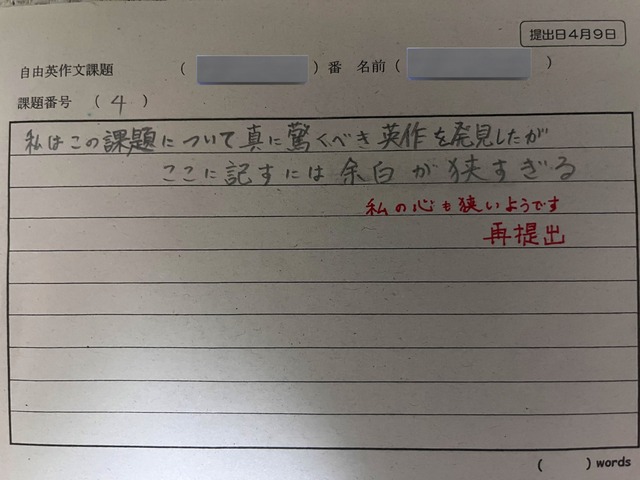 提出日4月9日
自由英作文課題 ( )番 名前( )
課題番号 (4)
私はこの課題について真に驚くべき英作を発見したが
ここに記すには余白が狭すぎる
私の心も狭いようです
再提出
( ) words